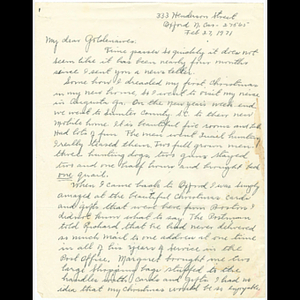 333 Henderson Street
Oxford N. Car. 27565
Feb 27, 1971
My dear Goldenaires.
Time passes so quickly it does not
seem like it has been nearly five months
since I sent you a news letter.
Some how I dreaded my first Christmas
in my new home, so I went to visit my niece
in Augusta Ga. On the New Years week end
we went to Sumter County SC to their new
Mobile home. It is beautiful five rooms and
had lots of fun. The men went Quail hunting
I really teased them. Two full grown men
three hunting dogs, two guns stayed
two and one half hours and brought back
one quail.
When I came back to Oxford I was simply
amazed at the beautiful Christmas cards
and gifts that were here from Boston I
didn't know what to say. The Postman
told Richard, that he had never delivered
so much mail to one address at one time
in all of his years of service in the
Post Office. Margaret brought me two
large shopping bags stuffed to the
handles with cards and gifts. I had no
idea that my Christmas would be so